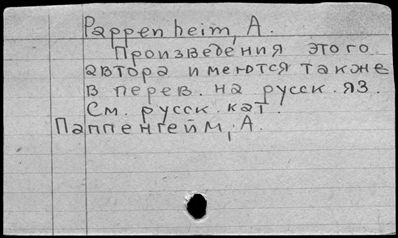 Pappenheim, A.
Произведения этого
автора имеются также
в перев. на русск. яз.
См. русск. кат.
Паппенгейм, А.